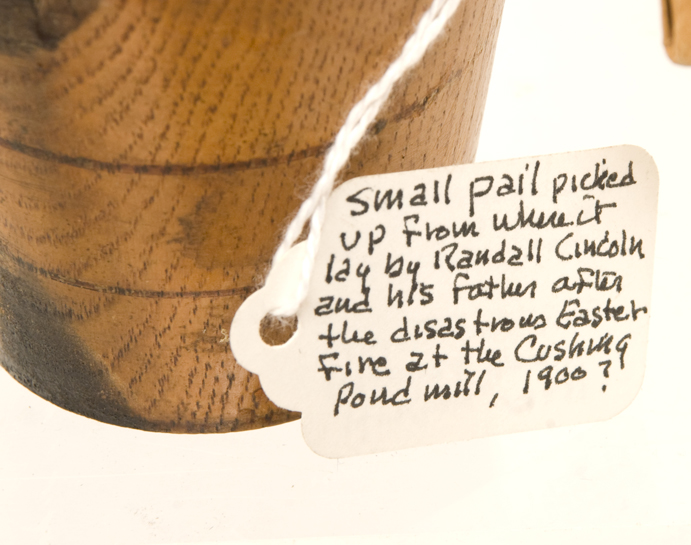 small pail picked
up from where it
lay by Randall Lincoln
and his father after
the disastrous Easter
Fire at the Cushing
Pond mill, 1900?